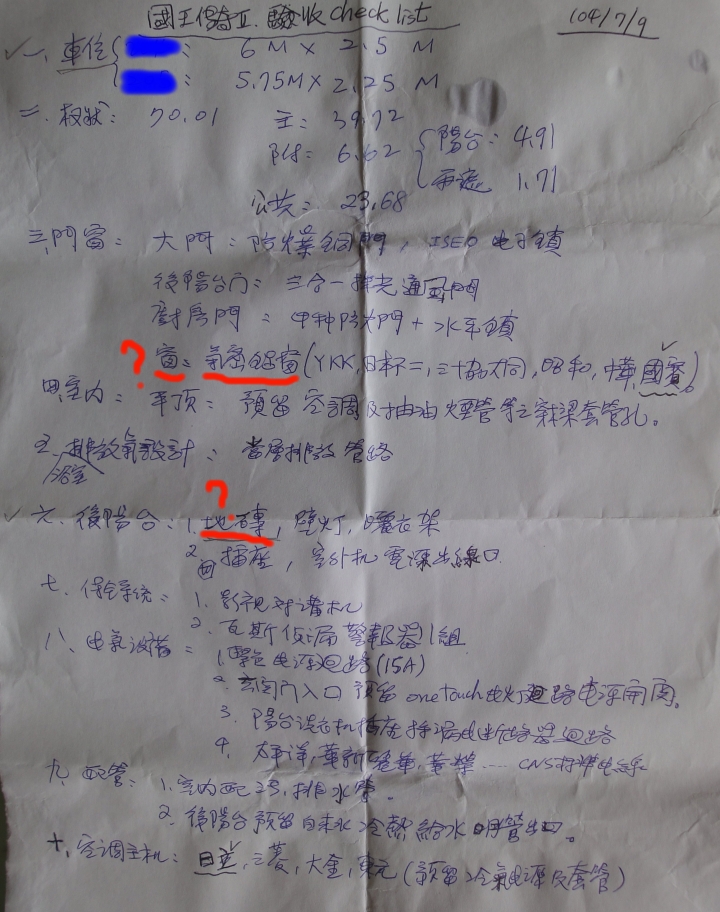 國王傳奇II. 驗收 check list 104/7/9
一、車位 : 6 M × 2.5 M
: 5.75M × 2.25 M
二、权狀: 70.01 主: 39.72
附: 6.62 陽台: 4.91
雨遮 1.71
公共: 23.68
三、門窗: 大門: 防爆鋼門, ISEO 电子鎖
後陽台门: 三合一採光通風門
廚房門: 甲种防火門 + 水平鎖
? 窗: 氣密鋁窗 (YKK, 日本不二, 三協, 大同, 昭和, 中華, 國賓)。
四、室内: 平頂: 預留空調及抽油煙管等之穿梁套管孔。
五、排放氣設計: 當層排放管路
浴室
?
六、後陽台: 1. 地磚, 壁灯, 曬衣架
2. 插座, 室外机電源出線口
七、保全系統: 1. 影視对講机
2. 瓦斯偵漏警報器1組
八、电氣設備: 1. 專用电源迴路(15A)
2. 玄関门入口預留 one touch 电灯迴路电源開関。
3. 陽台洗衣机插座 漏电断路器迴路
4. 太平洋, 華新麗華, 華榮 ..... CNS 电線
九、配管: 1. 室内 排水管。
2. 後陽台預留自来水冷熱給水明管出口。
十、空调主机: 日立, 三菱, 大金, 東元 (預留冷氣电源及套管)